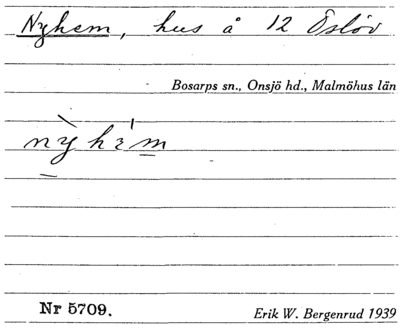 Nyhem, hus å 12 Öslöv
Bosarps sn., Onsjö hd., Malmöhus län
nỳhèm
Nr 5709.
Erik W. Bergenrud 1939